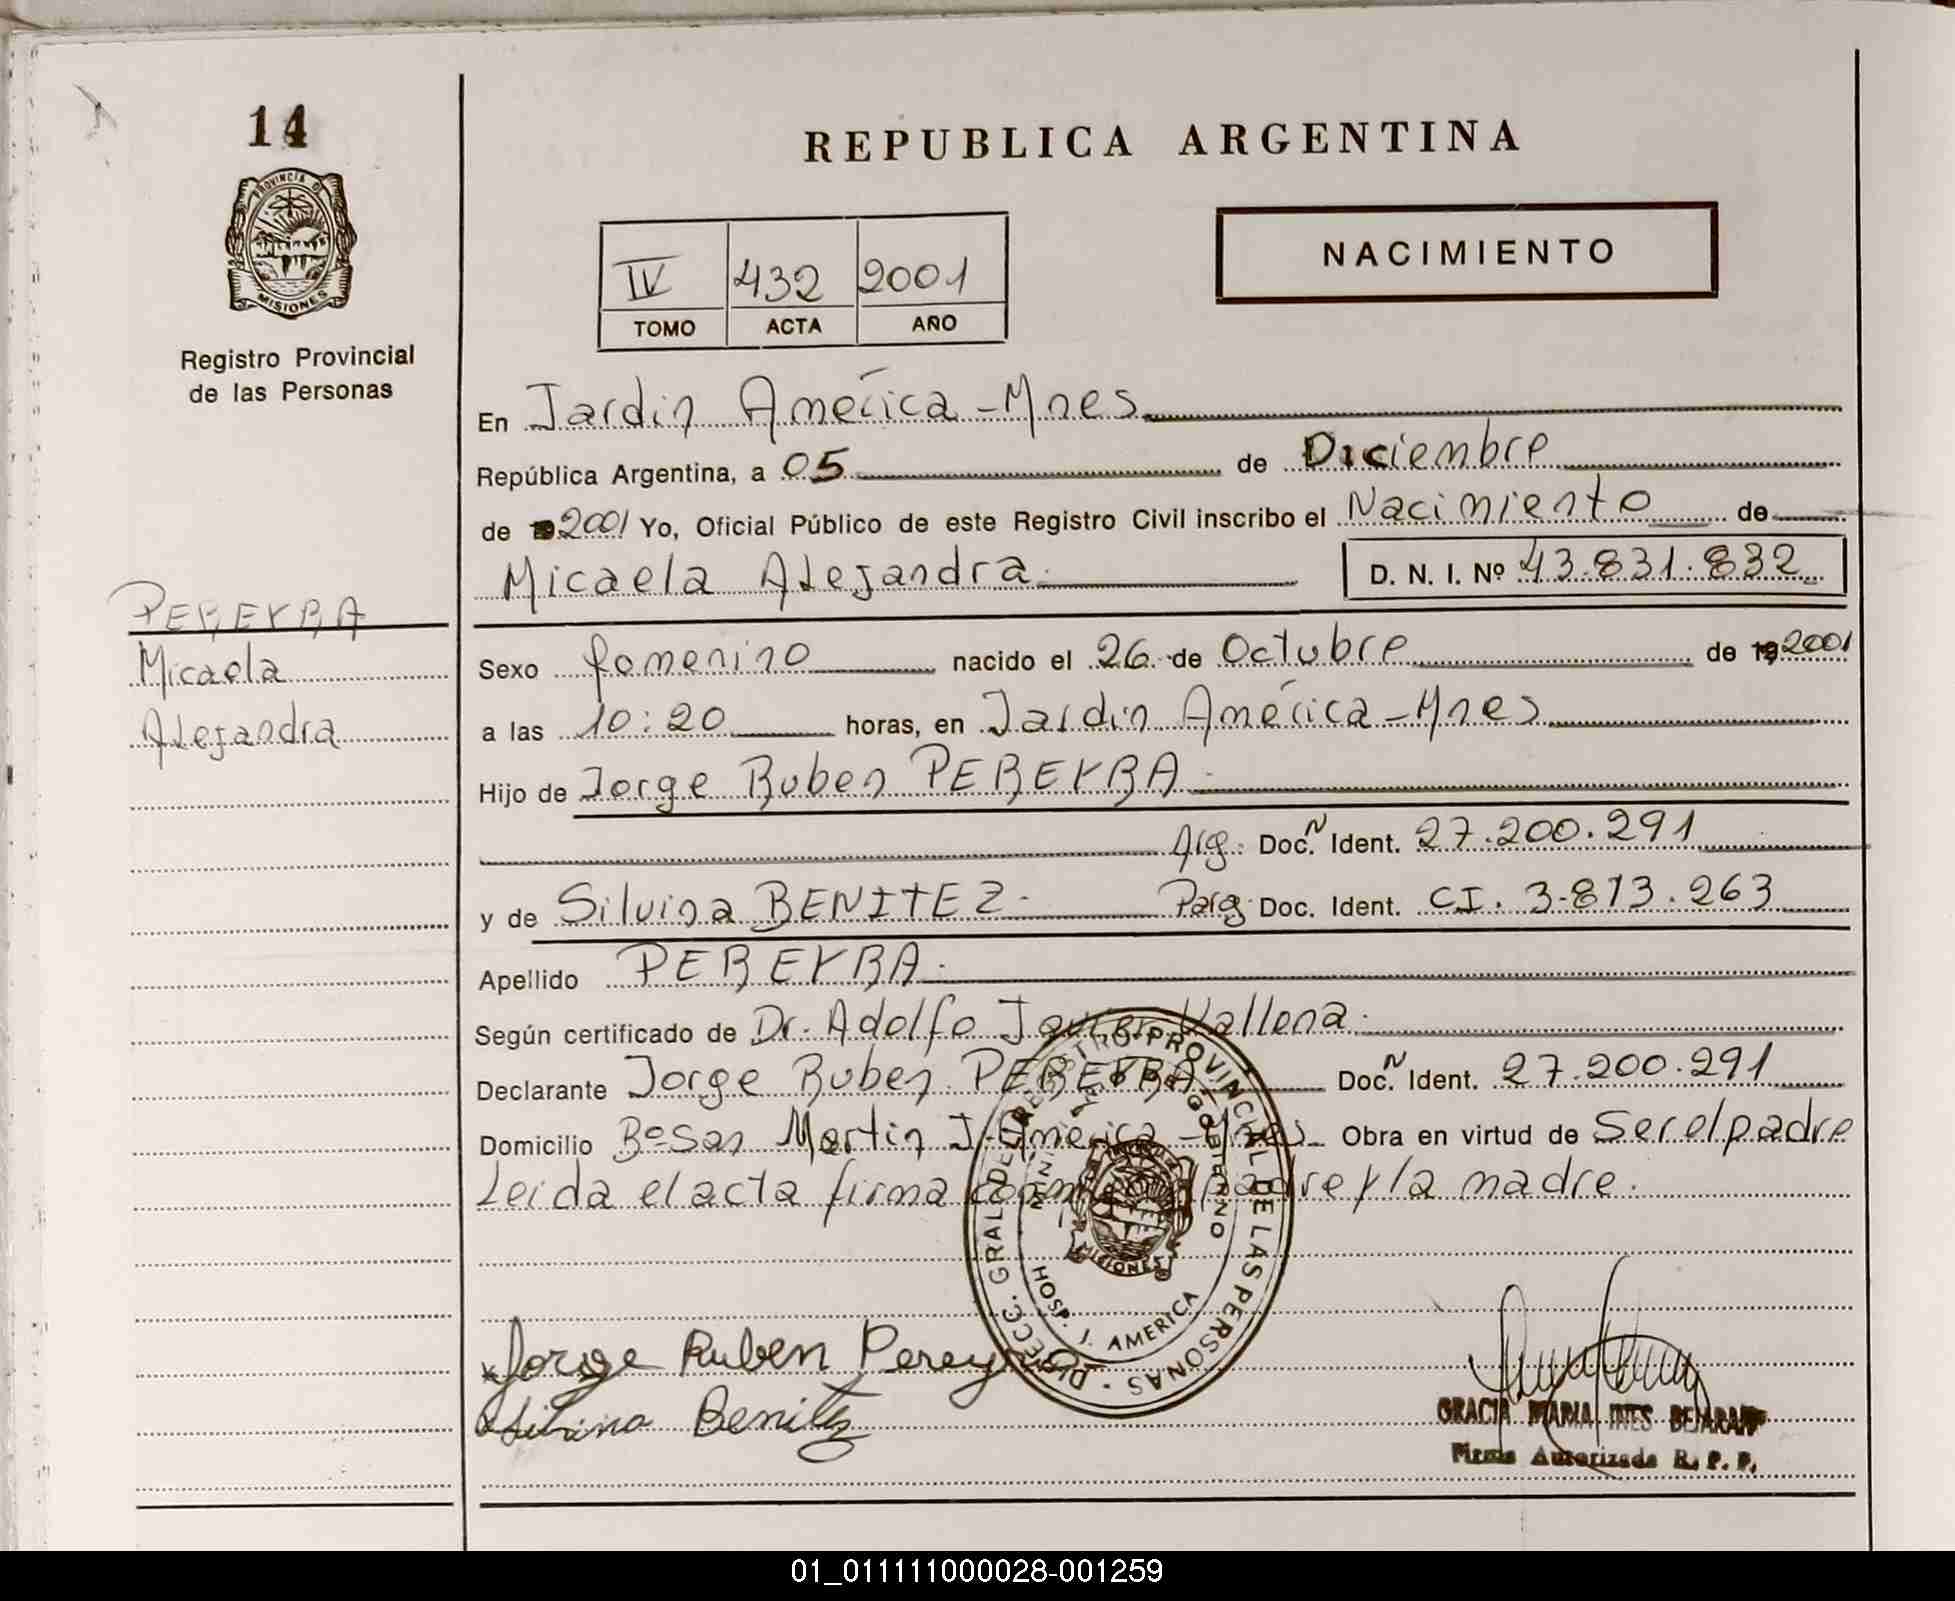 14
PROVINCIA DE
MISIONES
Registro Provincial
de las Personas
REPUBLICA ARGENTINA
IV 432 2001
TOMO ACTA AÑO
NACIMIENTO
En Jardin América - Mnes
República Argentina, a 05 de Diciembre
de 2001 Yo, Oficial Público de este Registro Civil inscribo el Nacimiento de
Micaela Alejandra D. N. I. Nº 43.831.832
PEREYRA
Micaela
Alejandra
Sexo femenino nacido el 26 de Octubre de 19 2001
a las 10:20 horas, en Jardin América - Mnes
Hijo de Jorge Ruben PEREYRA
Arg. Doc. N Ident. 27.200.291
y de Silvina BENITEZ Parag Doc. Ident. CI. 3.873.263
Apellido PEREYRA
Según certificado de Dr. Adolfo Javier Vallena
Declarante Jorge Ruben PEREYRA Doc. N Ident. 27.200.291
Domicilio Bº San Martin J. América - Mnes Obra en virtud de Ser el padre
Leida el acta firma conmigo padre y la madre.
DIRECC. GRAL. DEL REGISTRO PROVINCIAL DE LAS PERSONAS
GOBIERNO
MISIONES
HOSP. J. AMERICA
Jorge Ruben Pereyra
Silvina Benitez
GRACIA MARIA INES BEJARANO
Firma Autorizada R. P. P.
01_011111000028-001259